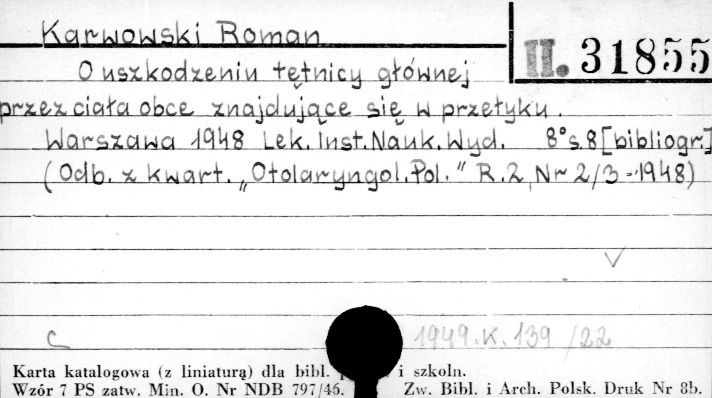 Karwowski Roman
II. 31855
O uszkodzeniu tętnicy głównej
przez ciała obce znajdujące się w przełyku.
Warszawa 1948 Lek. Inst. Nauk. Wyd. 8° s. 8 [bibliogr.]
(Odb. z kwart. „Otolaryngol. Pol." R. 2, Nr 2/3 - 1948)
C 1949. K. 139 /22
Karta katalogowa (z liniaturą) dla bibl. i szkoln.
Wzór 7 PS zatw. Min. O. Nr NDB 797/46. Zw. Bibl. i Arch. Polsk. Druk Nr 8b.